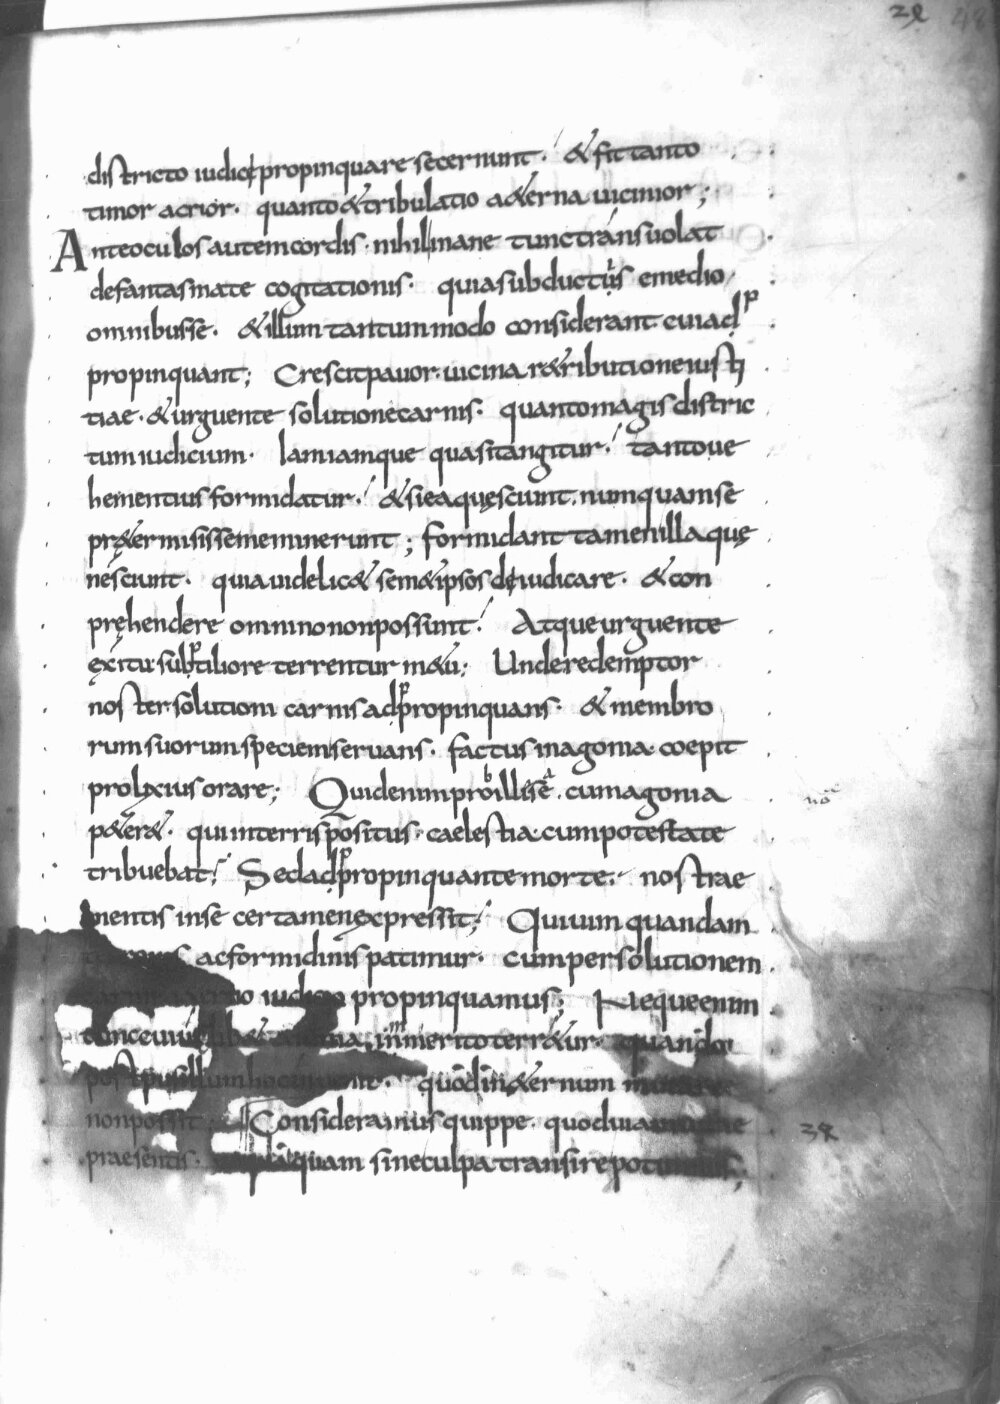 28 48
districto iudicio propinquare se cernunt. & fit tanto
timor acrior. quanto & tribulatio a&erna uicinior;
Ante oculos autem cordis. nihil inane tunc transuolat
de fantasmate cogitationis. quia subductis e medio
omnibus se. & illum tantummodo considerant cui ad
propinquant; Crescit pauor. uicina r&ributione iusti
tiae. & urguente solutione carnis. quanto magis distric
tum iudicium. Iam iamque quasi tangitur. tanto ue
hementius formidatur. & si ea quę sciunt. numquam se
pr&ermisisse meminerunt; formidant tamen illa quę
nesciunt. quia uidelic& sem&ipsos diiudicare. & con
pręhendere omnino non possunt. Atque urguente
exitu subtiliore terrentur m&u; Unde redemptor
noster. solutioni carnis adpropinquans. & membro
rum suorum speciem seruans. factus in agonia coepit
prolixius orare; Quid enim pro illis&. cum agonia
p&er&. qui in terris positus. caelestia cum potestate
tribuebat; Sed adpropinquante morte. nostrae
mentis in se certamen expressit; Qui uim quandam
ac formidinis patimur. cum per solutionem
iudicio propinquamus; Neque enim
tunc cuiuslib& anima. inmerito terr&ur. quando
post pusillum hoc quod in &ernum
non possit Consideramus quippe. quod uiam uitae
praesentis. quam sine culpa transire potuimus;
28